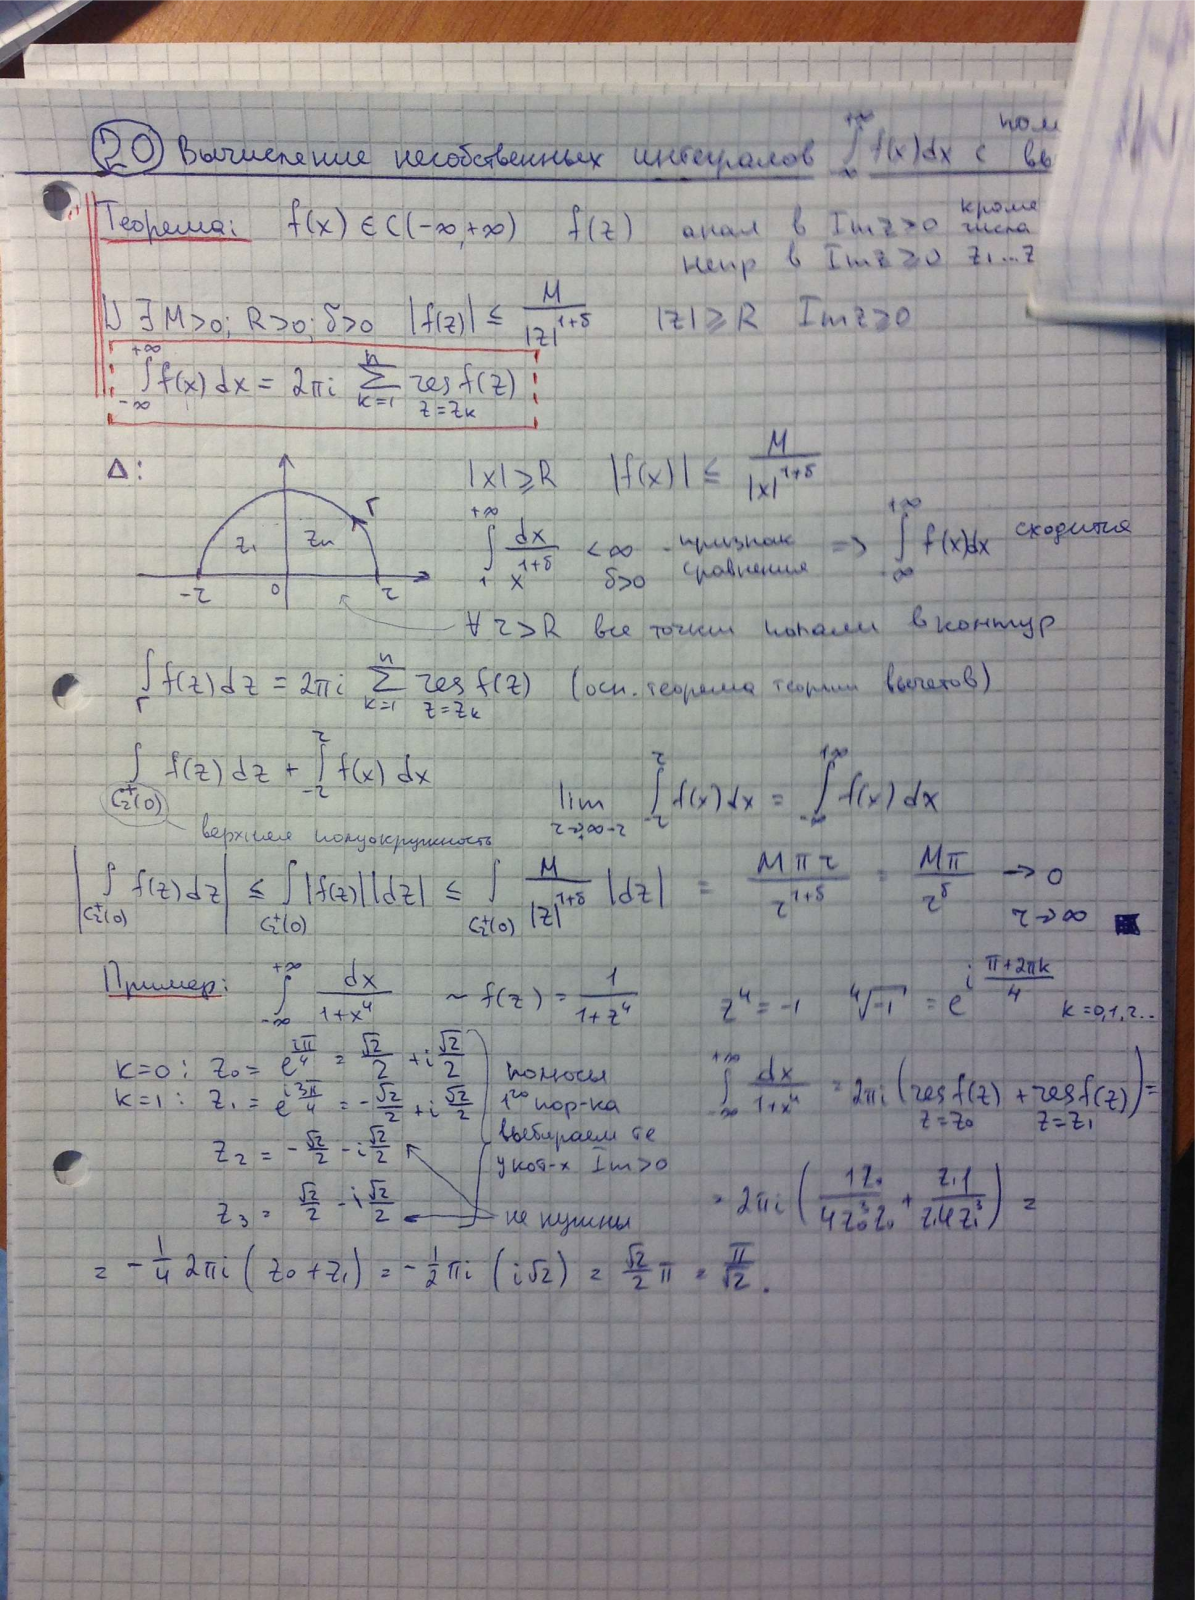 20 Вычисление несобственных интегралов ∫_{-∞}^{+∞} f(x)dx с пом вы
Теорема: f(x) ∈ C(-∞,+∞) f(z) анал в Im z > 0 кроме числа
непр в Im z ≥ 0 z₁...z
] ∃ M>0; R>0; δ>0 |f(z)| ≤ M/|z|^{1+δ} |z| ≥ R Im z ≥ 0
∫_{-∞}^{+∞} f(x) dx = 2πi ∑_{k=1}^{n} res_{z=z_k} f(z)
Δ: |x| ≥ R |f(x)| ≤ M/|x|^{1+δ}
Γ z₁ z_n -r 0 r
∫_{1}^{+∞} dx/x^{1+δ} < ∞ δ>0 - признак сравнения => ∫_{-∞}^{+∞} f(x)dx сходится
∀ r > R все точки попали в контур
∫_Γ f(z) dz = 2πi ∑_{k=1}^{n} res_{z=z_k} f(z) (осн. теорема теории вычетов)
∫_{C_r^+(0)} f(z) dz + ∫_{-r}^{r} f(x) dx
lim_{r→∞} ∫_{-r}^{r} f(x) dx = ∫_{-∞}^{+∞} f(x) dx
верхняя полуокружность
|∫_{C_r^+(0)} f(z) dz| ≤ ∫_{C_r^+(0)} |f(z)| |dz| ≤ ∫_{C_r^+(0)} M/|z|^{1+δ} |dz| = Mπr/r^{1+δ} = Mπ/r^δ → 0 r→∞ ■
Пример: ∫_{-∞}^{+∞} dx/(1+x⁴) ~ f(z) = 1/(1+z⁴) z⁴ = -1 ⁴√-1 = e^{i (π+2πk)/4} k=0,1,2..
k=0: z₀ = e^{iπ/4} = √2/2 + i √2/2
k=1: z₁ = e^{i3π/4} = -√2/2 + i √2/2
z₂ = -√2/2 - i √2/2
z₃ = √2/2 - i √2/2
полюсы
1го пор-ка
выбираем те
у кот-х Im>0
не нужны
∫_{-∞}^{+∞} dx/(1+x⁴) = 2πi (res_{z=z₀} f(z) + res_{z=z₁} f(z)) =
= 2πi (1z₀/(4z₀³z₀) + z₁1/(z₁4z₁³)) =
= -1/4 2πi (z₀+z₁) = -1/2 πi (i√2) = √2/2 π = π/√2.